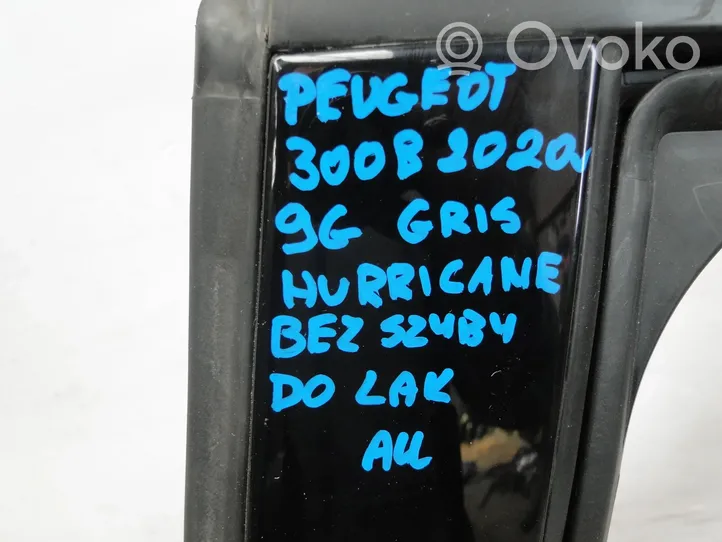 Ovoko
PEUGEOT
3008 2020r
9G GRIS
HURRICANE
BEZ SZYBY
DO LAK
ALL